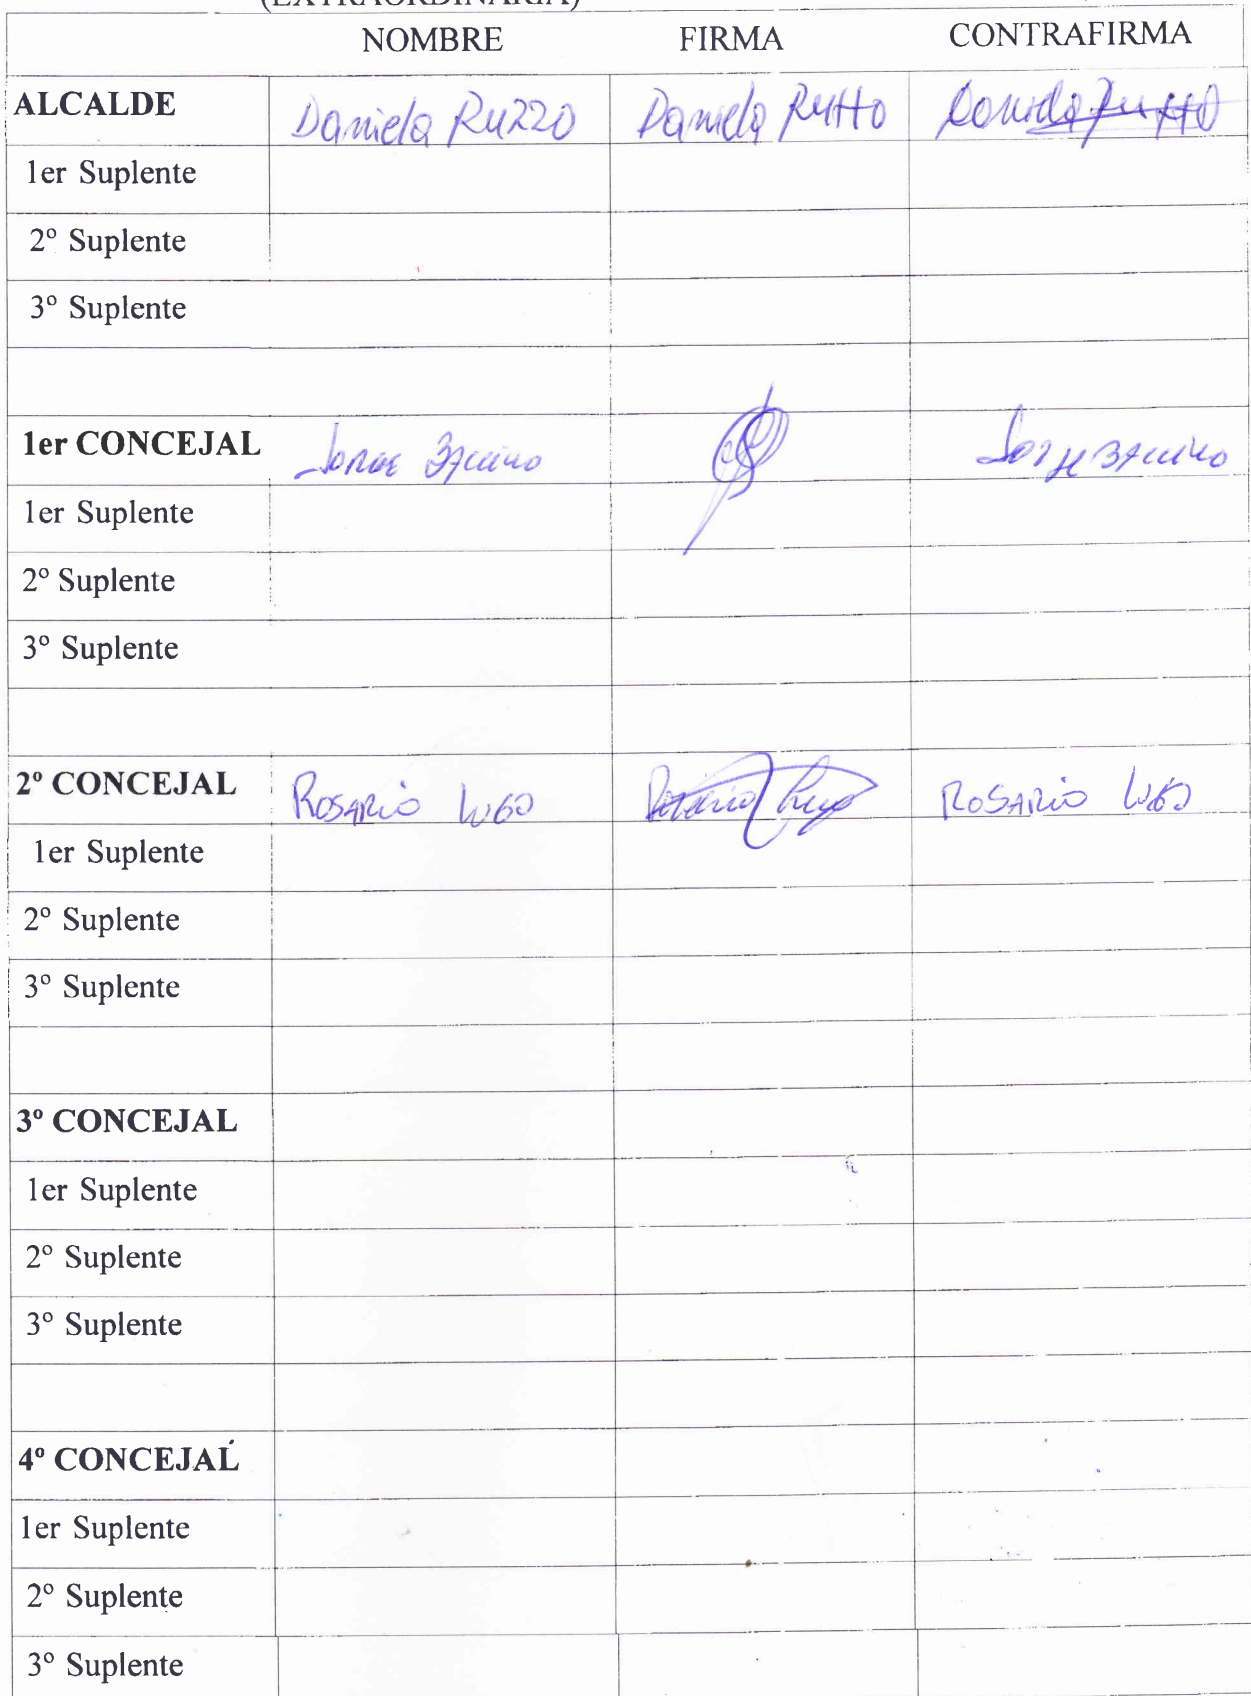 (EXTRAORDINARIA)
NOMBRE FIRMA CONTRAFIRMA
ALCALDE Daniela Ruzzo Daniela Ruzzo Daniela Ruzzo
1er Suplente
2º Suplente
3º Suplente
1er CONCEJAL Jorge Jorge
1er Suplente
2º Suplente
3º Suplente
2º CONCEJAL Rosario Lugo Rosario Lugo Rosario Lugo
1er Suplente
2º Suplente
3º Suplente
3º CONCEJAL
1er Suplente
2º Suplente
3º Suplente
4º CONCEJAL
1er Suplente
2º Suplente
3º Suplente